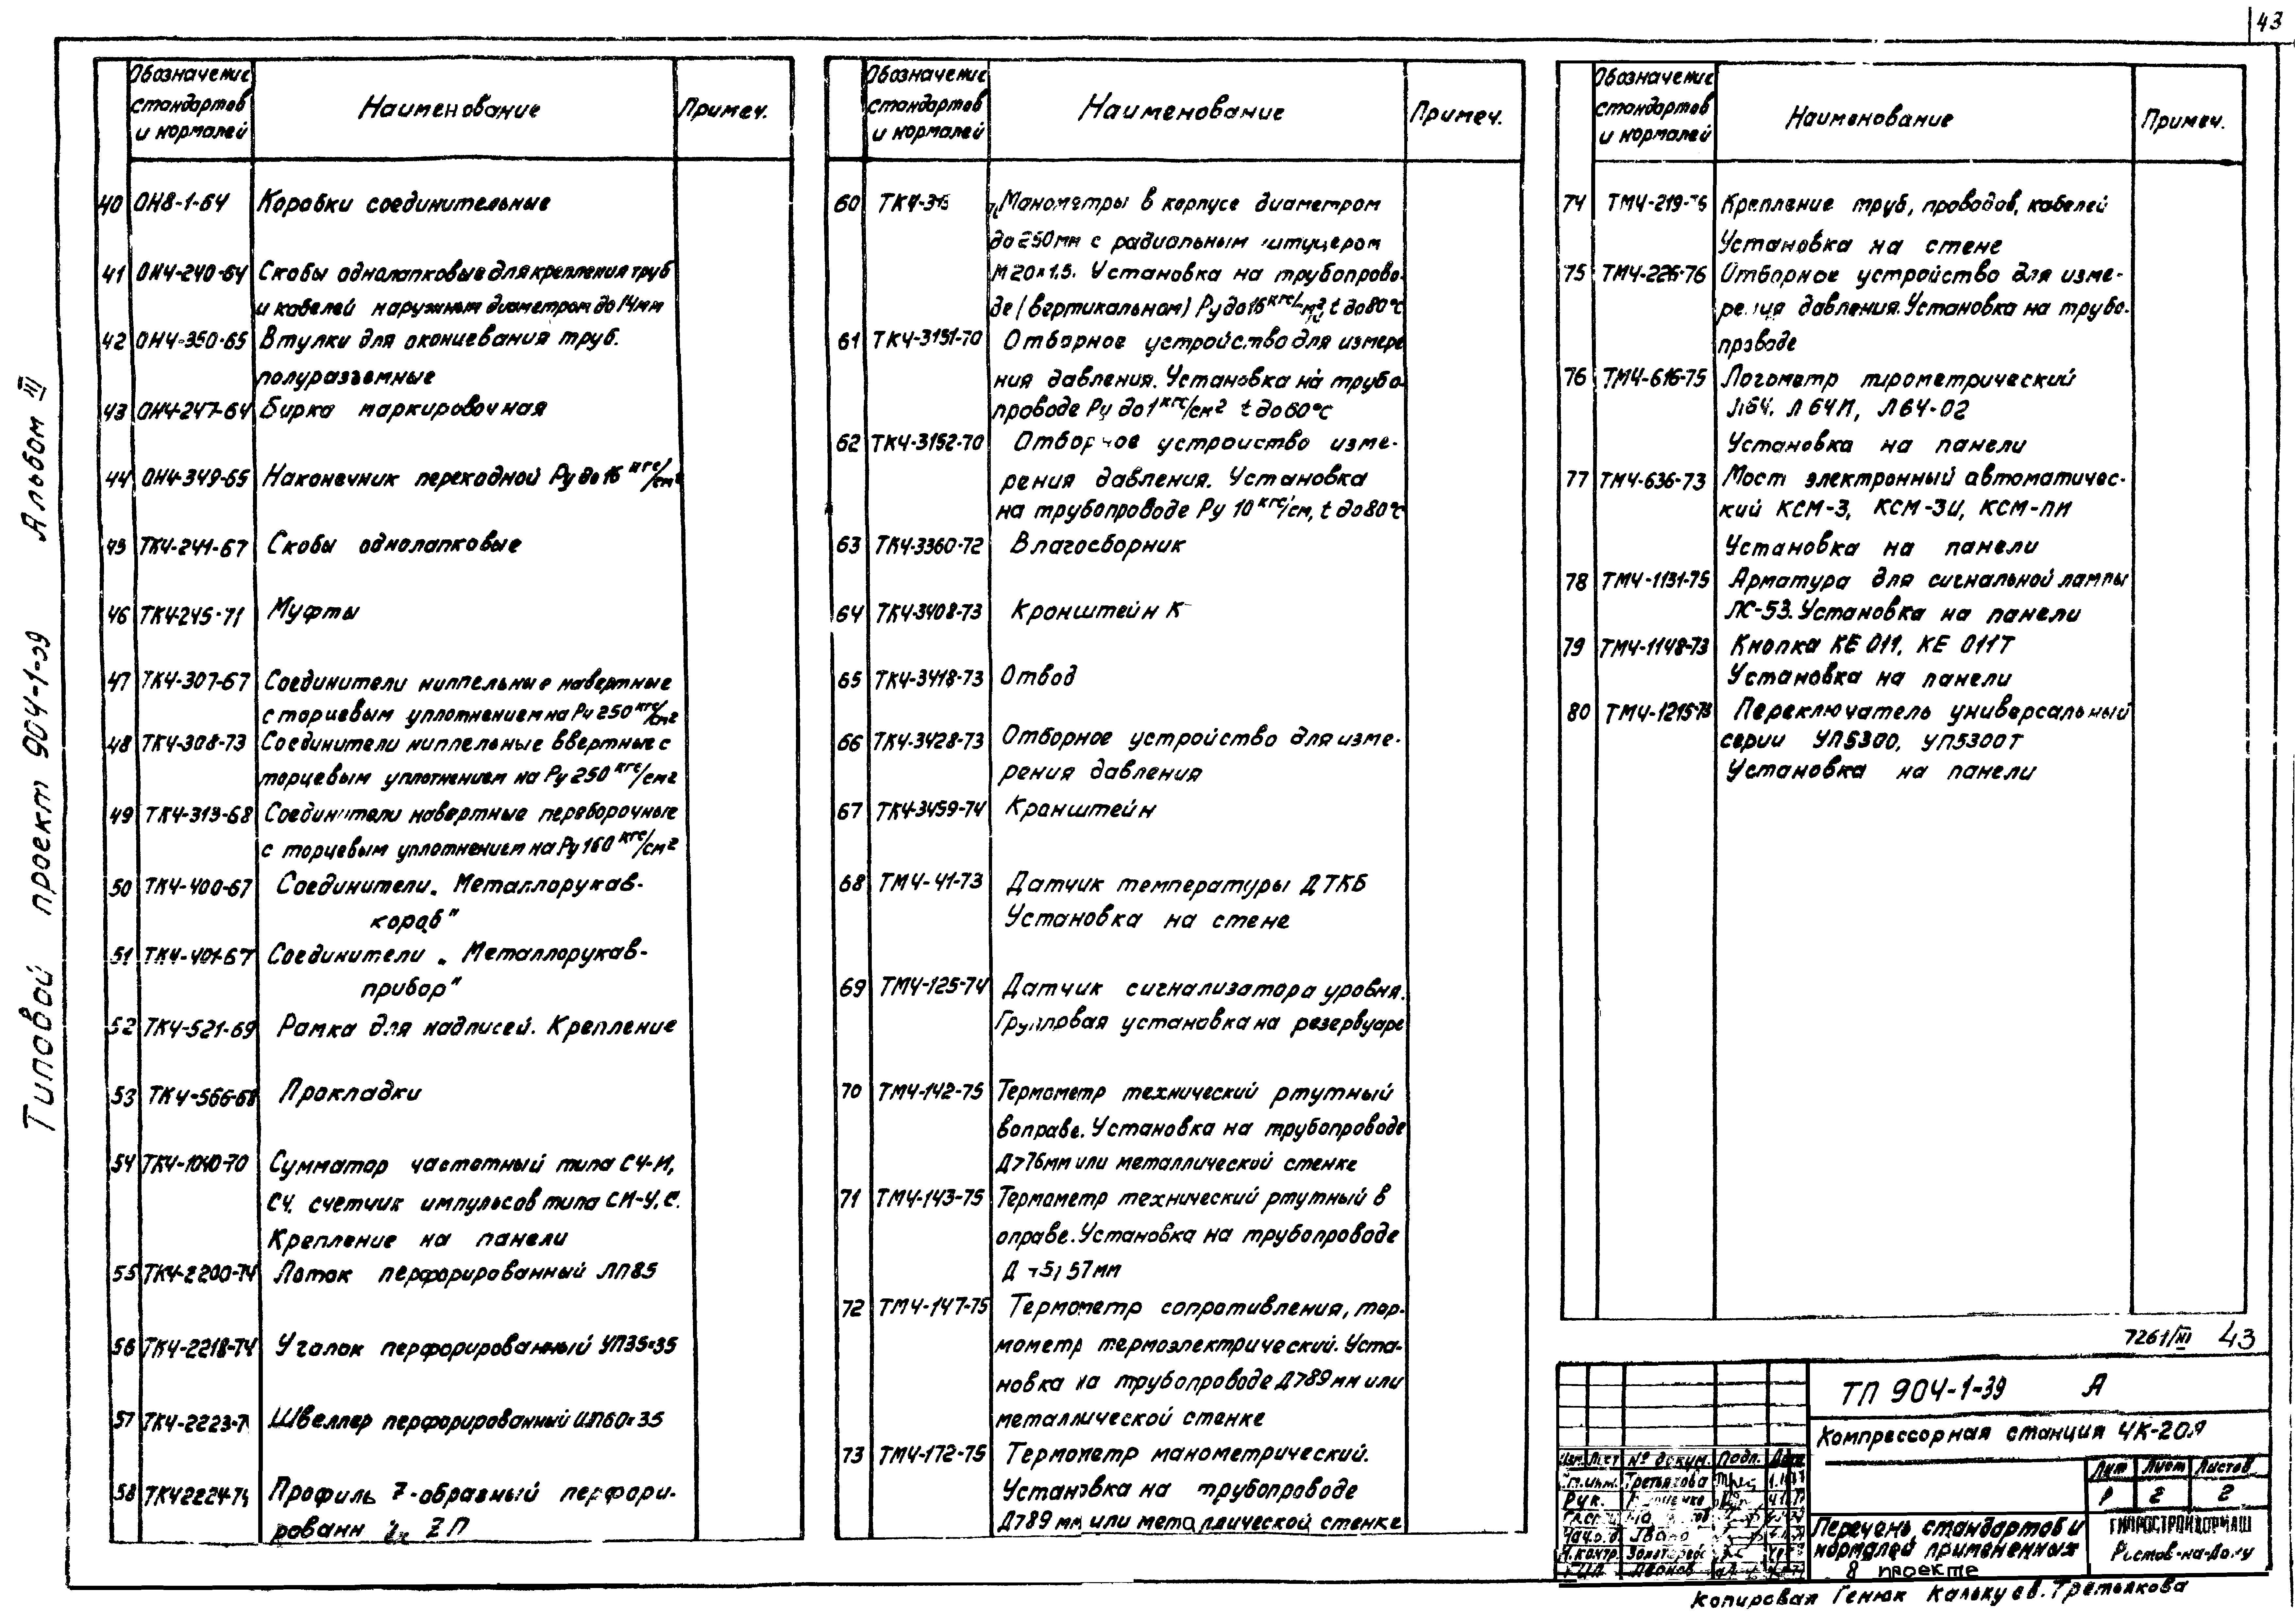 43
Типовой проект 904-1-39 Альбом III
Обозначение стандартов и нормалей Наименование Примеч.
40 ОН8-1-64 Коробки соединительные
41 ОН4-240-64 Скобы однолапковые для крепления труб
и кабелей наружным диаметром до 14мм
42 ОН4-350-65 Втулки для оконцевания труб.
полуразъемные
43 ОН4-247-64 Бирка маркировочная
44 ОН4-349-65 Наконечник переходной Ру до 16 кгс/см²
45 ТК4-241-67 Скобы однолапковые
46 ТК4-245-71 Муфты
47 ТК4-307-67 Соединители ниппельные навертные
с торцевым уплотнением на Ру 250 кгс/см²
48 ТК4-308-73 Соединители ниппельные ввертные с
торцевым уплотнением на Ру 250 кгс/см²
49 ТК4-313-68 Соединители навертные переборочные
с торцевым уплотнением на Ру 160 кгс/см²
50 ТК4-400-67 Соединители „Металлорукав-
короб"
51 ТК4-401-67 Соединители „Металлорукав-
прибор"
52 ТК4-521-69 Рамка для надписей. Крепление
53 ТК4-566-68 Прокладки
54 ТК4-1040-70 Сумматор частотный типа СЧ-И,
СЧ. счетчик импульсов типа СИ-У, С.
Крепление на панели
55 ТК4-2200-74 Лоток перфорированный ЛП85
56 ТК4-2218-74 Уголок перфорированный УП35×35
57 ТК4-2223-7 Швеллер перфорированный ШП60×35
58 ТК42224-74 Профиль Z-образный перфори-
рованн ZП
Обозначение стандартов и нормалей Наименование Примеч.
60 ТК4-31 Манометры в корпусе диаметром
до 250мм с радиальным штуцером
М20×1,5. Установка на трубопрово-
де (вертикальном) Ру до 16 кгс/см², t до 80°С
61 ТК4-3151-70 Отборное устройство для измере
ния давления. Установка на трубо-
проводе Ру до 1 кгс/см² t до 60°С
62 ТК4-3152-70 Отборное устройство изме-
рения давления. Установка
на трубопроводе Ру 10 кгс/см, t до 80°С
63 ТК4-3360-72 Влагосборник
64 ТК4-3408-73 Кронштейн К
65 ТК4-3418-73 Отвод
66 ТК4-3428-73 Отборное устройство для изме-
рения давления
67 ТК4-3459-74 Кронштейн
68 ТМ4-41-73 Датчик температуры ДТКБ
Установка на стене
69 ТМ4-125-74 Датчик сигнализатора уровня.
Групповая установка на резервуаре
70 ТМ4-142-75 Термометр технический ртутный
в оправе. Установка на трубопроводе
Д>76мм или металлической стенке
71 ТМ4-143-75 Термометр технический ртутный в
оправе. Установка на трубопроводе
Д 57мм
72 ТМ4-147-75 Термометр сопротивления, тер-
мометр термоэлектрический. Уста-
новка на трубопроводе Д>89мм или
металлической стенке
73 ТМ4-172-75 Термометр манометрический.
Установка на трубопроводе
Д>89 мм или металлической стенке
Обозначение стандартов и нормалей Наименование Примеч.
74 ТМ4-219-76 Крепление труб, проводов, кабелей
Установка на стене
75 ТМ4-226-76 Отборное устройство для изме-
рения давления. Установка на трубо-
проводе
76 ТМ4-616-75 Логометр пирометрический
Л64, Л64И, Л64-02
Установка на панели
77 ТМ4-636-73 Мост электронный автоматичес-
кий КСМ-3, КСМ-3И, КСМ-ПИ
Установка на панели
78 ТМ4-1131-75 Арматура для сигнальной лампы
ЛС-53. Установка на панели
79 ТМ4-1148-73 Кнопка КЕ 011, КЕ 011Т
Установка на панели
80 ТМ4-1215-73 Переключатель универсальный
серии УП5300, УП5300Т
Установка на панели
7261/III 43
ТП 904-1-39 А
Компрессорная станция 4К-20А
Изм. Лист № докум. Подп. Дата
Третьякова
Рук.
Н.контр. Золотарев
Лит Лист Листов
Р 2 2
Перечень стандартов и
нормалей примененных
в проекте
ГИПРОСТРОЙДОРМАШ
Ростов-на-Дону
Копировал Генюк Кальку св. Третьякова